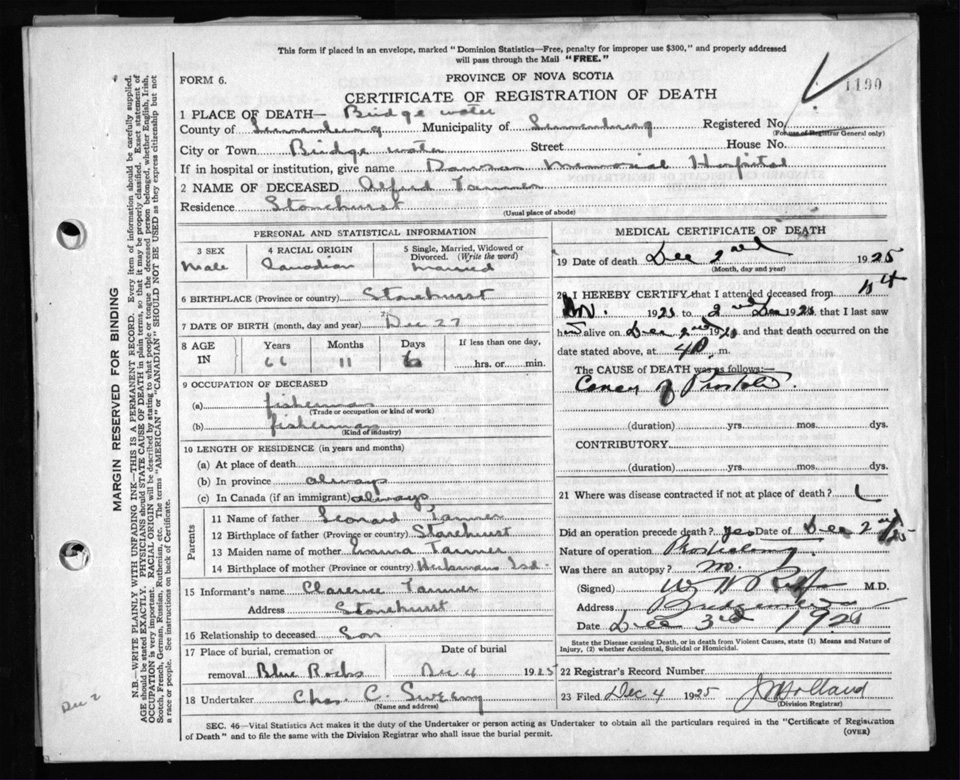 This form if placed in an envelope, marked "Dominion Statistics—Free, penalty for improper use $300," and properly addressed
will pass through the Mail "FREE."
FORM 6.
PROVINCE OF NOVA SCOTIA
1190
CERTIFICATE OF REGISTRATION OF DEATH
1 PLACE OF DEATH— Bridge water
County of Lunenburg Municipality of Lunenburg Registered No.
(For use of Registrar General only)
City or Town Bridge water Street House No.
If in hospital or institution, give name Dawson Memorial Hospital
2 NAME OF DECEASED Alfred Tanner
Residence Stonehurst
(Usual place of abode)
PERSONAL AND STATISTICAL INFORMATION
3 SEX 4 RACIAL ORIGIN 5 Single, Married, Widowed or Divorced. (Write the word)
Male Canadian married
6 BIRTHPLACE (Province or country) Stonehurst
7 DATE OF BIRTH (month, day and year) Dec 27
8 AGE IN Years Months Days If less than one day,
66 11 6 hrs. or min.
9 OCCUPATION OF DECEASED
(a) fisherman
(Trade or occupation or kind of work)
(b) fisherman
(Kind of industry)
10 LENGTH OF RESIDENCE (in years and months)
(a) At place of death
(b) In province always
(c) In Canada (if an immigrant) always
Parents
11 Name of father Leonard Tanner
12 Birthplace of father (Province or country) Stonehurst
13 Maiden name of mother Emma Tanner
14 Birthplace of mother (Province or country) Heckmans Isd.
15 Informant's name Clarence Tanner
Address Stonehurst
16 Relationship to deceased Son
17 Place of burial, cremation or Date of burial
removal Blue Rocks Dec 4 1925
18 Undertaker Chas. C. Sweeny
(Name and address)
MEDICAL CERTIFICATE OF DEATH
19 Date of death Dec 2nd 1925
(Month, day and year)
20 I HEREBY CERTIFY that I attended deceased from
192 to 2nd Dec 192 , that I last saw
h alive on Dec 2nd 192 and that death occurred on
date stated above, at 4 P. m.
The CAUSE of DEATH was as follows:—
Cancer of Prostate.
(duration) yrs. mos. dys.
CONTRIBUTORY
(duration) yrs. mos. dys.
21 Where was disease contracted if not at place of death?
Did an operation precede death? yes Date of Dec 2nd
Nature of operation
Was there an autopsy? no.
(Signed) M.D.
Address Bridgewater
Date Dec 3rd 192
State the Disease causing Death, or in death from Violent Causes, state (1) Means and Nature of
Injury, (2) whether Accidental, Suicidal or Homicidal.
22 Registrar's Record Number
23 Filed Dec 4 1925 J Holland
(Division Registrar)
SEC. 46—Vital Statistics Act makes it the duty of the Undertaker or person acting as Undertaker to obtain all the particulars required in the "Certificate of Registration
of Death" and to file the same with the Division Registrar who shall issue the burial permit.
(OVER)
MARGIN RESERVED FOR BINDING
N.B.—WRITE PLAINLY WITH UNFADING INK—THIS IS A PERMANENT RECORD. Every item of information should be carefully supplied.
AGE should be stated EXACTLY. PHYSICIANS should STATE CAUSE OF DEATH in plain terms, so that it may be properly classified. Exact statement of
OCCUPATION is very important. RACIAL ORIGIN will be described by stating to what people or tongue the deceased person belonged, whether English, Irish,
Scotch, French, German, Russian, Ruthenian, etc. The terms "AMERICAN" or "CANADIAN" SHOULD NOT BE USED as they express citizenship but not
a race or people. See instructions on back of Certificate.
Dec 2